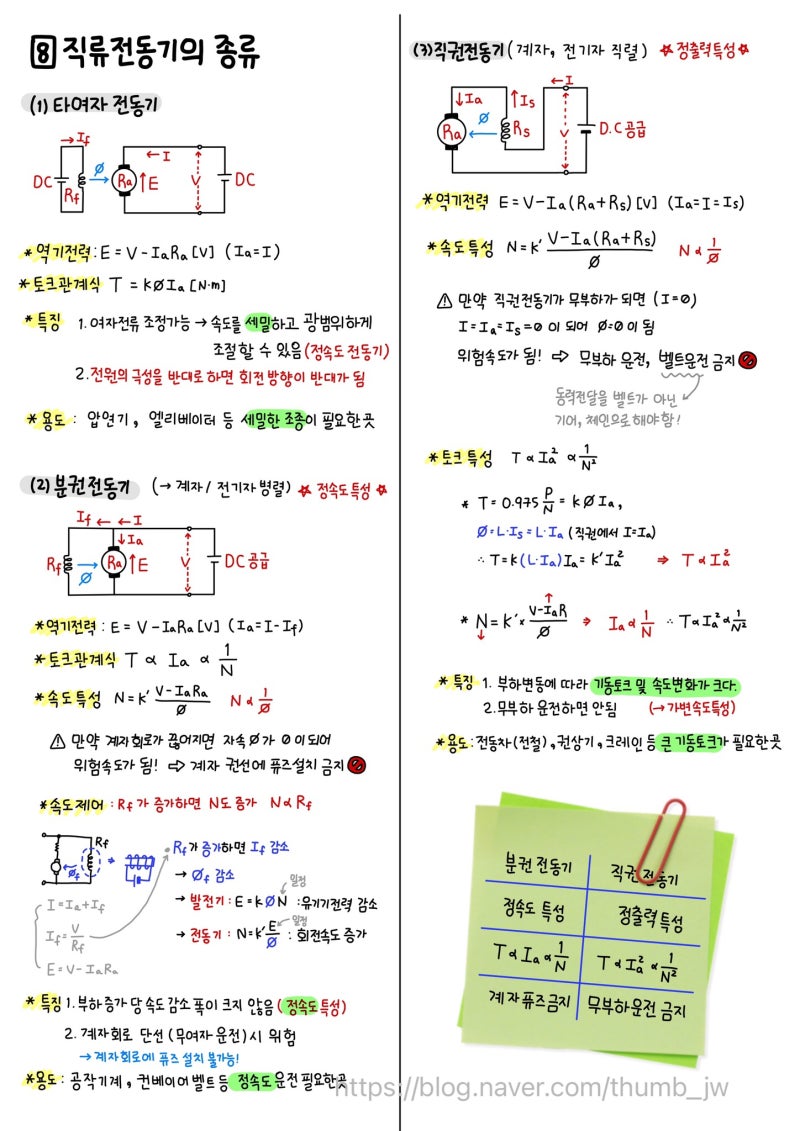 8 직류전동기의 종류
(1) 타여자 전동기
→ If
DC
Rf
Ø
Ra
← I
↑E
V
DC
*역기전력 : E = V - IaRa [V] (Ia=I)
*토크관계식 T = kØIa [N·m]
*특징 1. 여자전류 조정가능 → 속도를 세밀하고 광범위하게
조절할 수 있음 (정속도 전동기)
2. 전원의 극성을 반대로 하면 회전 방향이 반대가 됨
*용도 : 압연기, 엘리베이터 등 세밀한 조종이 필요한곳
(2) 분권전동기 (→ 계자/전기자 병렬) ☆ 정속도특성 ☆
If ← ← I
↓Ia
Rf
Ø
Ra
↑E
V
DC 공급
*역기전력 : E = V - IaRa [V] (Ia = I - If)
*토크관계식 T ∝ Ia ∝ 1/N
*속도특성 N = k' (V - IaRa)/Ø N ∝ 1/Ø
⚠ 만약 계자회로가 끊어지면 자속 Ø가 0이 되어
위험속도가 됨! ⇨ 계자 권선에 퓨즈설치 금지🚫
*속도제어 : Rf가 증가하면 N도 증가 N ∝ Rf
Rf
Øf
Rf가 증가하면 If 감소
→ Øf 감소
일정
→ 발전기 : E = kØN : 유기기전력 감소
일정
→ 전동기 : N = k' E/Ø : 회전속도 증가
I = Ia + If
If = V/Rf
E = V - IaRa
*특징 1. 부하증가 당 속도감소 폭이 크지 않음 (정속도특성)
2. 계자회로 단선 (무여자 운전) 시 위험
→ 계자회로에 퓨즈 설치 불가능!
*용도 : 공작기계, 컨베이어벨트 등 정속도 운전 필요한곳
(3) 직권전동기 (계자, 전기자 직렬) ☆ 정출력특성 ☆
← I
↓Ia
↑Is
Ra
Ø
Rs
V
D.C 공급
*역기전력 E = V - Ia(Ra+Rs) [V] (Ia = I = Is)
*속도특성 N = k' (V - Ia(Ra+Rs))/Ø N ∝ 1/Ø
⚠ 만약 직권전동기가 무부하가 되면 (I=0)
I = Ia = Is = 0 이 되어 Ø=0이 됨
위험속도가 됨! ⇨ 무부하 운전, 벨트운전 금지🚫
동력전달을 벨트가 아닌
기어, 체인으로 해야함!
*토크 특성 T ∝ Ia² ∝ 1/N²
* T = 0.975 P/N = kØIa,
Ø = L·Is = L·Ia (직권에서 I=Ia)
∴ T = k(L·Ia)Ia = k'Ia² ⇒ T ∝ Ia²
* N↓ = k' × (V - Ia↑R)/Ø ⇒ Ia ∝ 1/N ∴ T ∝ Ia² ∝ 1/N²
*특징 1. 부하변동에 따라 기동토크 및 속도변화가 크다.
2. 무부하 운전하면 안됨 (→ 가변속도특성)
*용도 : 전동차(전철), 권상기, 크레인 등 큰 기동토크가 필요한곳
분권 전동기 직권 전동기
정속도 특성 정출력 특성
T ∝ Ia ∝ 1/N T ∝ Ia² ∝ 1/N²
계자 퓨즈금지 무부하운전 금지
https://blog.naver.com/thumb_jw